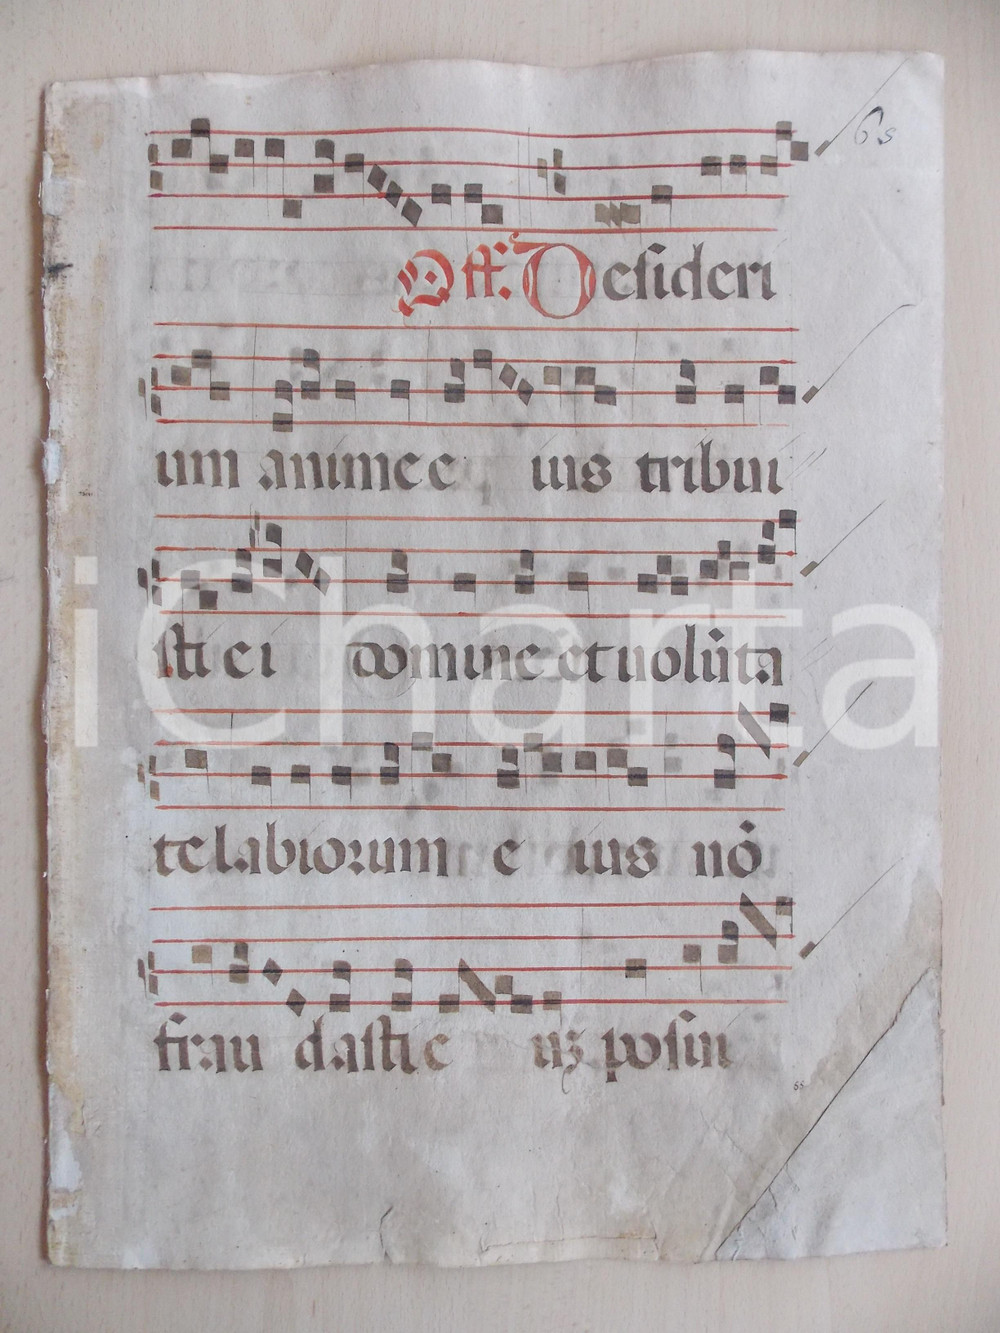 6s
Off. Desideri
um anime e ius tribui
sti ei domine et uolūta
te labiorum e ius nō
frau dasti e uʒ posui
65
iCharta